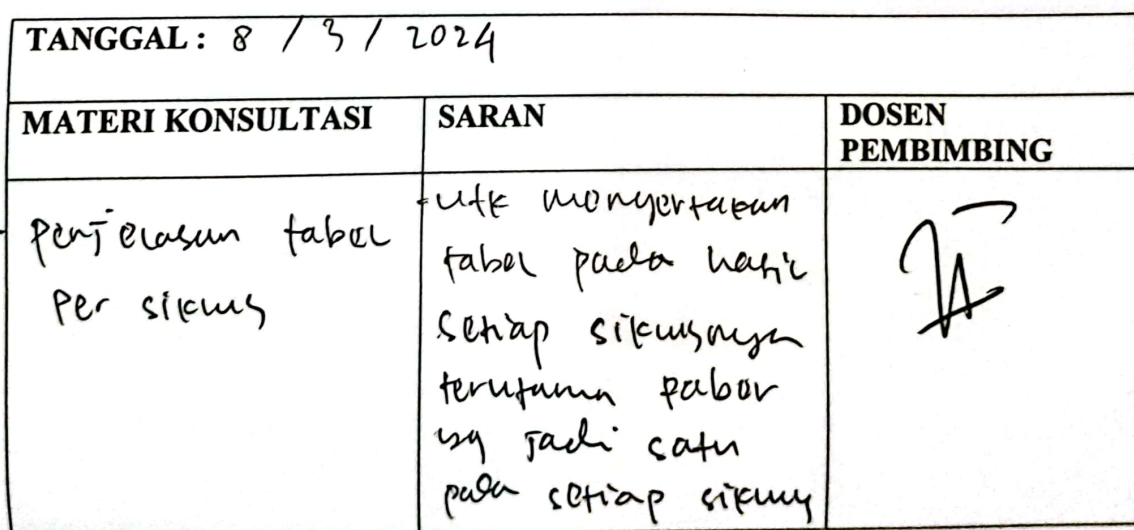 TANGGAL : 8 / 3 / 2024
MATERI KONSULTASI
SARAN
DOSEN
PEMBIMBING
Penjelasan tabel
Per siklus
- utk menyertakan
tabel pada hasil
setiap siklusnya
terutama
yg jadi satu
pada setiap siklus